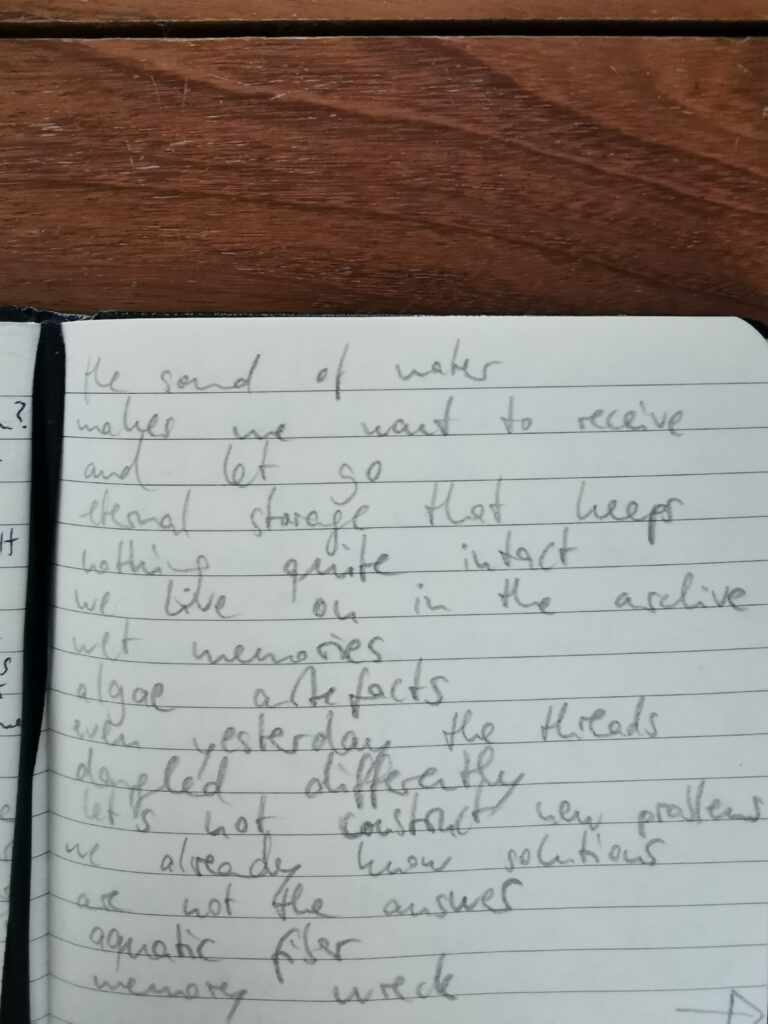 the sound of water
makes me want to receive
and let go
eternal storage that keeps
nothing quite intact
we live on in the archive
wet memories
algae artefacts
even yesterday the threads
dangled differently
let's not construct new problems
we already know solutions
are not the answer
aquatic fiber
memory wreck